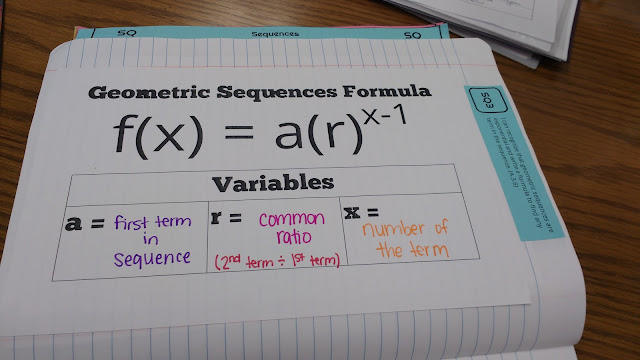 SQ Sequences SQ
Geometric Sequences Formula
f(x) = a(r)^x-1
Variables
a = first term
in
sequence
r = common
ratio
(2nd term ÷ 1st term)
x =
number of
the term
SQ3